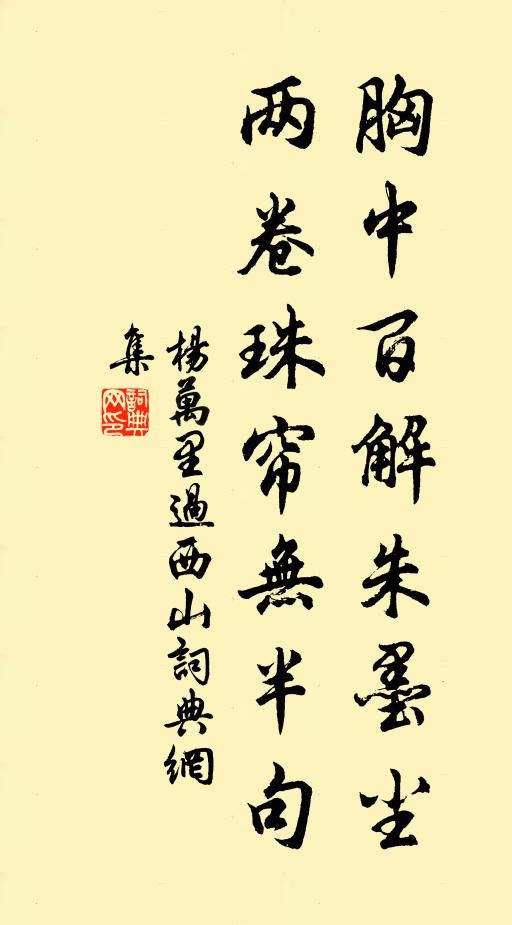 胸中百解朱墨尘
两卷珠帘無半句
楊萬里過西山詞典網
集
詞典
网印